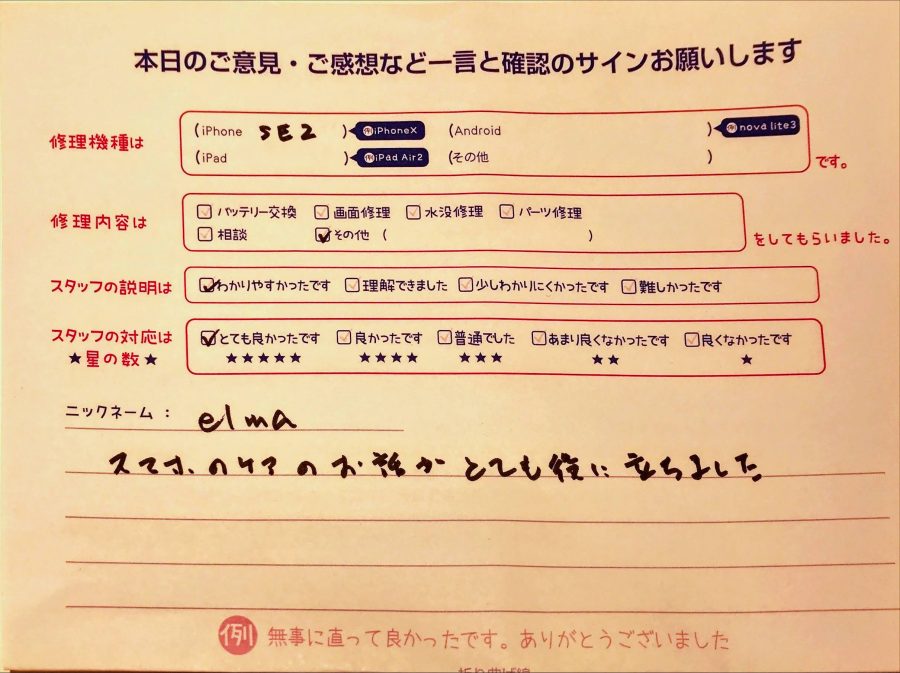 本日のご意見・ご感想など一言と確認のサインお願いします
修理機種は
(iPhone SE2 ) 例iPhoneX (Android ) 例nova lite3
(iPad ) 例iPad Air2 (その他 ) です。
修理内容は
バッテリー交換 画面修理 水没修理 パーツ修理
相談 その他 ( ) をしてもらいました。
スタッフの説明は わかりやすかったです 理解できました 少しわかりにくかったです 難しかったです
スタッフの対応は とても良かったです 良かったです 普通でした あまり良くなかったです 良くなかったです
★星の数★ ★★★★★ ★★★★ ★★★ ★★ ★
ニックネーム: elma
スマホのケアのお話がとても役に立ちました
例 無事に直って良かったです。ありがとうございました